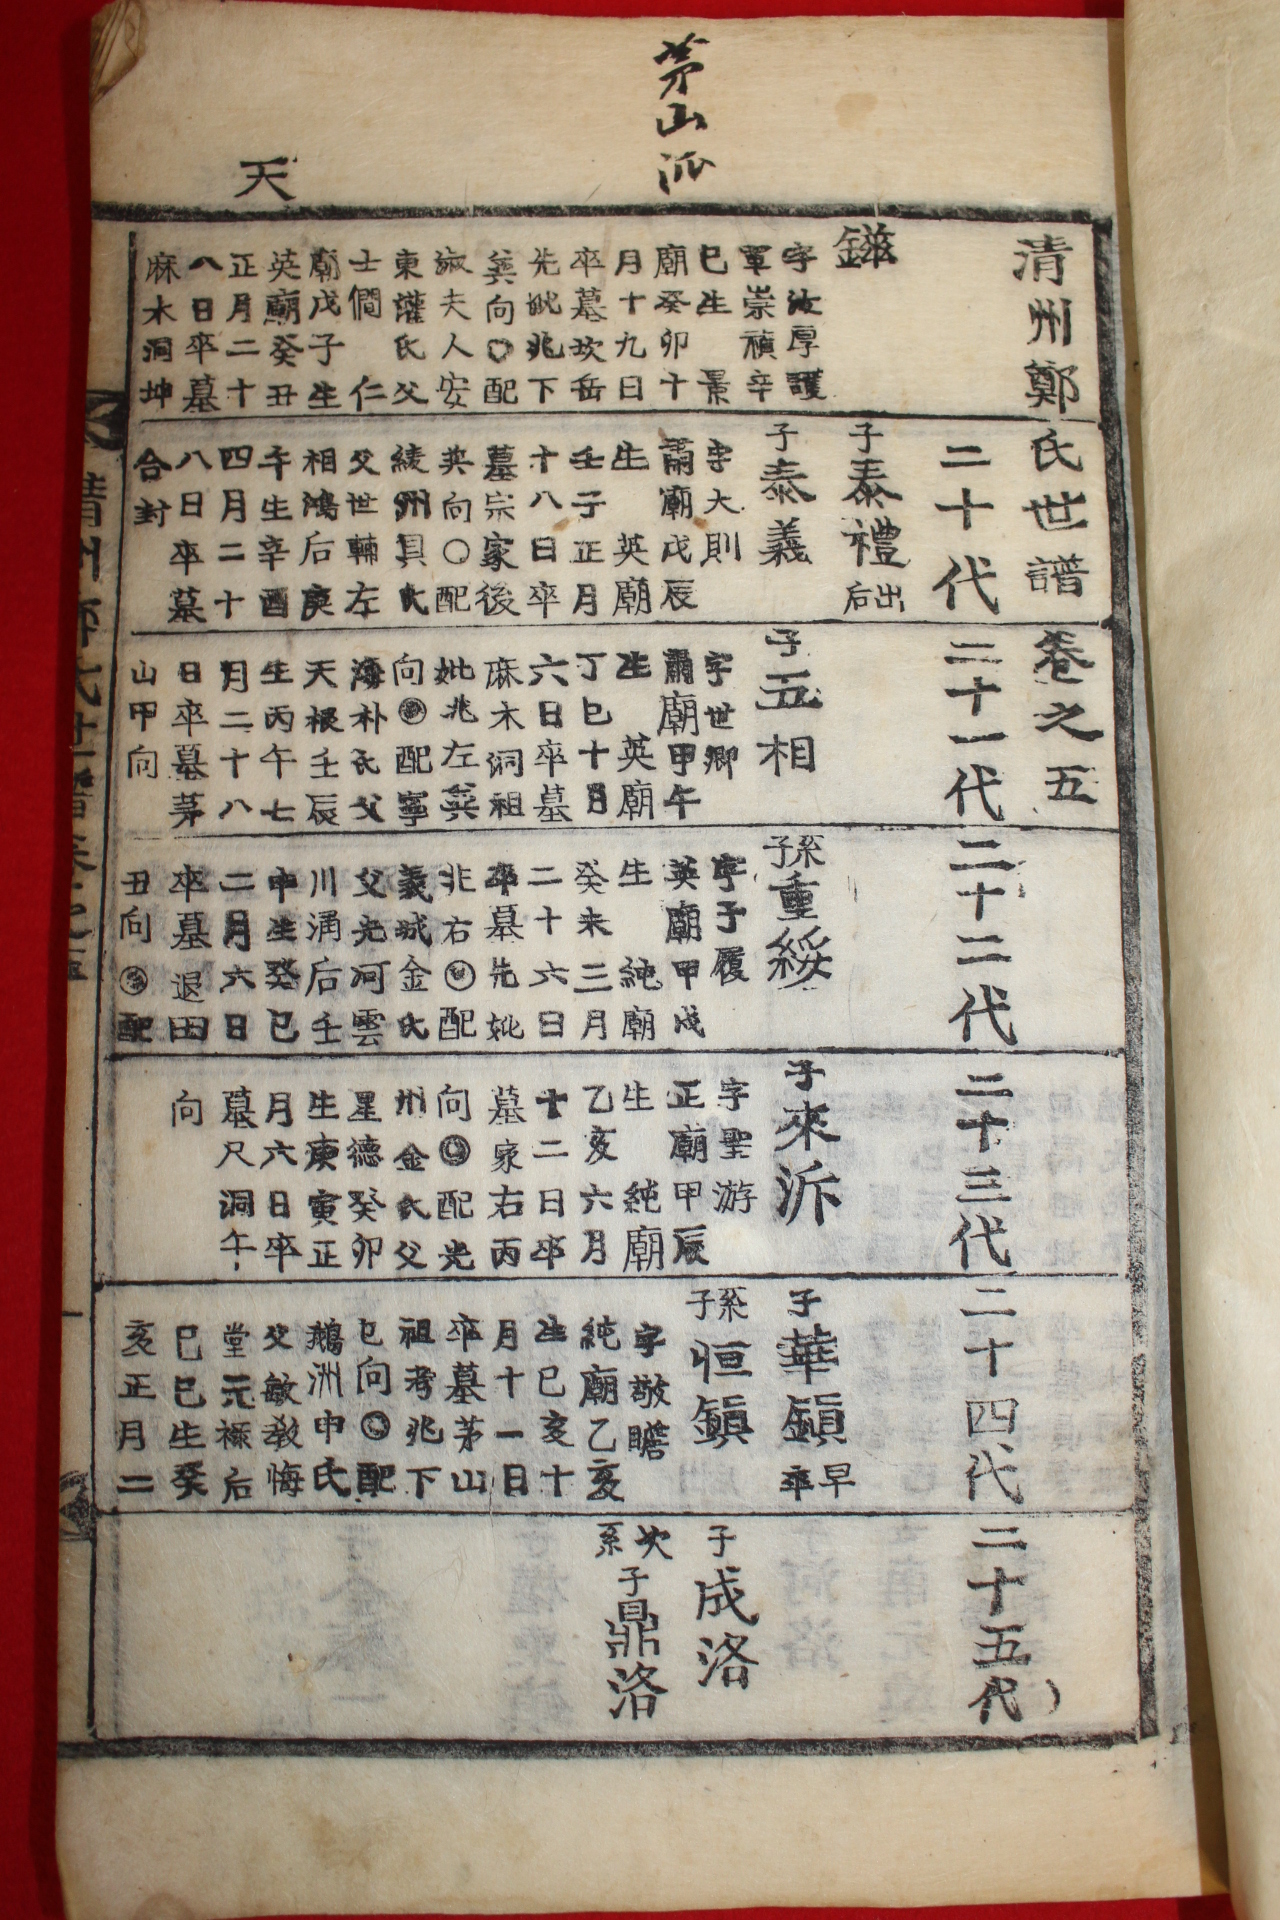 茅山派
天
清州鄭氏世譜卷之五
二十代
二十一代
二十二代
二十三代
二十四代
二十五代
鎡
字汝厚護
軍崇禎辛
巳生 景
廟癸卯十
月十九日
卒墓坎岳
先妣兆下
巽向○配
淑夫人安
東權氏父
士僩 仁
廟戊子生
英廟癸丑
正月二十
八日卒墓
麻木洞坤
子泰禮出后
子泰義
字大則
肅廟戊辰
生 英廟
壬子正月
十八日卒
墓宗家後
巽向○配
綾州具氏
父世輔左
相鴻后庚
午生辛酉
四月二十
八日卒墓
合封
子五相
字世卿
肅廟甲午
生 英廟
丁巳十月
六日卒墓
麻木洞祖
妣兆左巽
向 配寧
海朴氏父
天根壬辰
生丙午七
月二十八
日卒墓茅
山甲向
系子重綏
字子履
英廟甲戌
生 純廟
癸未三月
二十六日
卒墓先妣
兆右 配
義城金氏
父光河雲
川涌后壬
申生癸巳
二月六日
卒墓退田
丑向 配
子來泝
字聖游
正廟甲辰
生 純廟
乙亥六月
十二日卒
墓泉右丙
向 配光
州金氏父
星德癸卯
生庚寅正
月六日卒
墓尺洞午
向
子華鎭早卒
系子恒鎭
字敬瞻
純廟乙亥
生巳亥十
月十一日
卒墓茅山
祖考兆下
巳向 配
鵝洲申氏
父敏敎悔
堂元祿后
己巳生癸
亥正月二
子成洛
次系子鼎洛